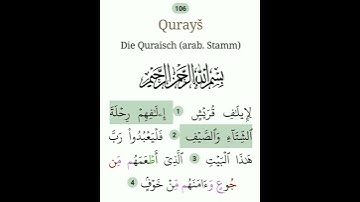 106
Qurayš
Die Quraisch (arab. Stamm)
بِسْمِ ٱللَّهِ ٱلرَّحْمَٰنِ ٱلرَّحِيمِ
لِإِيلَٰفِ قُرَيْشٍ 1 إِۦلَٰفِهِمْ رِحْلَةَ
ٱلشِّتَآءِ وَٱلصَّيْفِ 2 فَلْيَعْبُدُوا۟ رَبَّ
هَٰذَا ٱلْبَيْتِ 3 ٱلَّذِىٓ أَطْعَمَهُم مِّن
جُوعٍ وَءَامَنَهُم مِّنْ خَوْفٍۭ 4